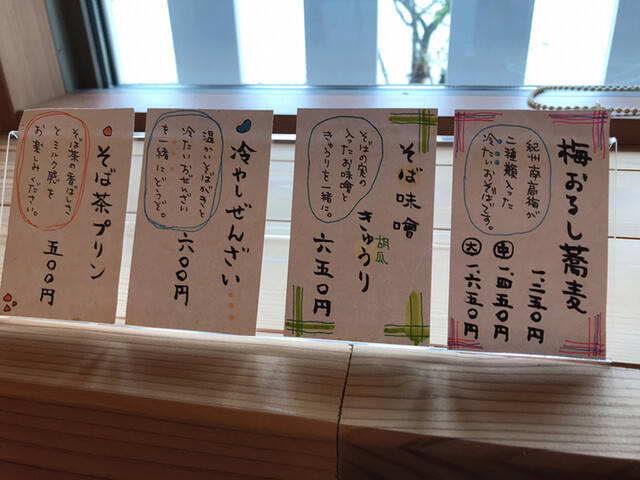 梅おろし蕎麦
紀州南高梅が
二種類入った
冷たいおそばです。
一、二五〇円
中 一、四五〇円
大 一、六五〇円
そば味噌
きゅうり
胡瓜
そばの実の
入ったお味噌と
きゅうりを一緒に。
六五〇円
冷やしぜんざい
温かいそばがきと
冷たいおぜんざい
を一緒にどうぞ。
六〇〇円
そば茶プリン
そば茶の香ばしさ
とミルク感を
お楽しみください。
五〇〇円